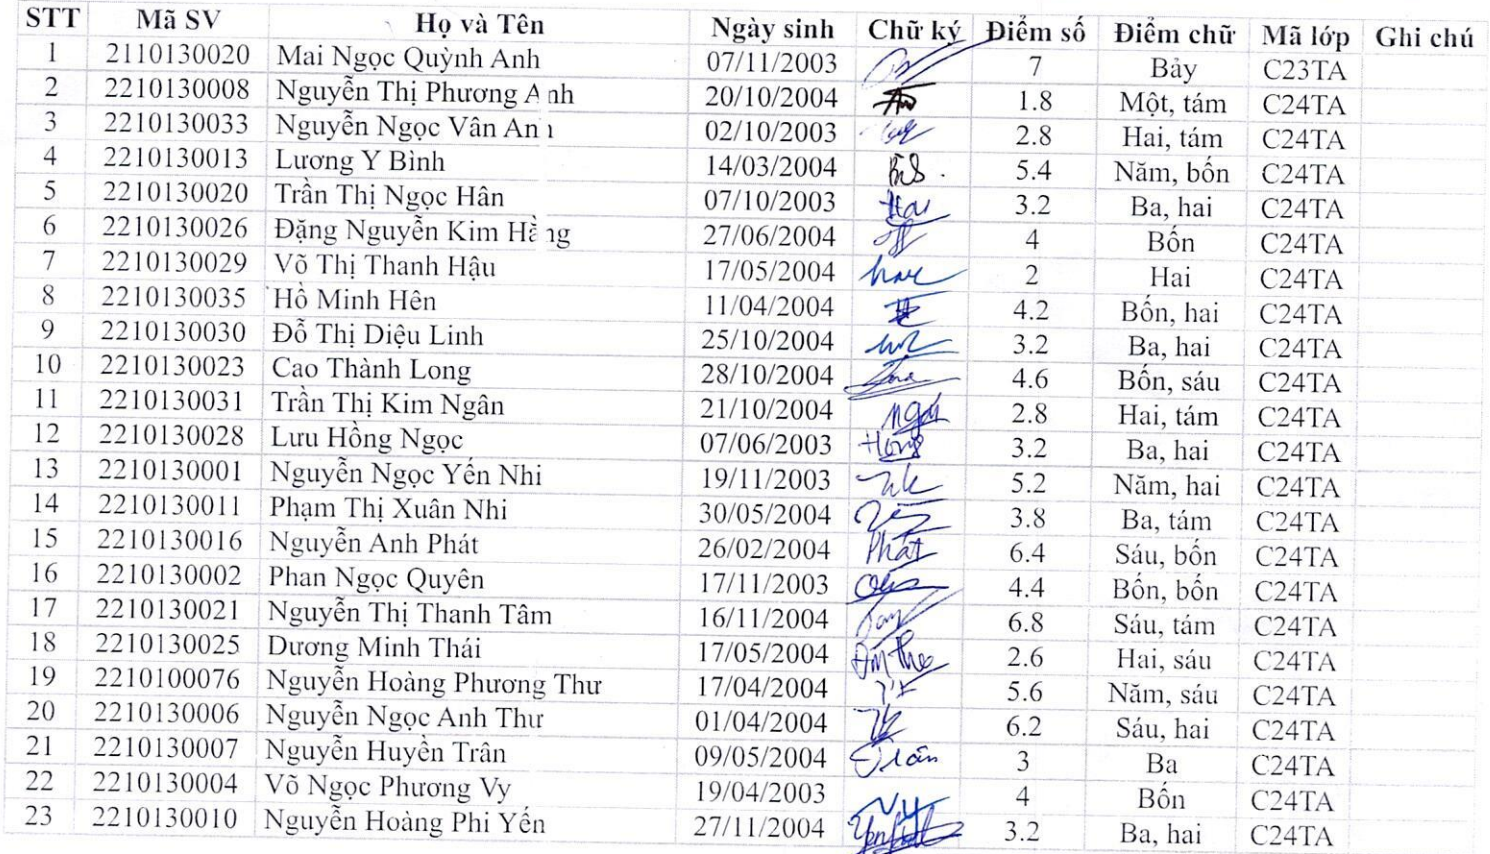 STT Mã SV Họ và Tên Ngày sinh Chữ ký Điểm số Điểm chữ Mã lớp Ghi chú
1 2110130020 Mai Ngọc Quỳnh Anh 07/11/2003 7 Bảy C23TA
2 2210130008 Nguyễn Thị Phương Anh 20/10/2004 1.8 Một, tám C24TA
3 2210130033 Nguyễn Ngọc Vân Anh 02/10/2003 2.8 Hai, tám C24TA
4 2210130013 Lương Y Bình 14/03/2004 5.4 Năm, bốn C24TA
5 2210130020 Trần Thị Ngọc Hân 07/10/2003 3.2 Ba, hai C24TA
6 2210130026 Đặng Nguyễn Kim Hằng 27/06/2004 4 Bốn C24TA
7 2210130029 Võ Thị Thanh Hậu 17/05/2004 2 Hai C24TA
8 2210130035 Hồ Minh Hên 11/04/2004 4.2 Bốn, hai C24TA
9 2210130030 Đỗ Thị Diệu Linh 25/10/2004 3.2 Ba, hai C24TA
10 2210130023 Cao Thành Long 28/10/2004 4.6 Bốn, sáu C24TA
11 2210130031 Trần Thị Kim Ngân 21/10/2004 2.8 Hai, tám C24TA
12 2210130028 Lưu Hồng Ngọc 07/06/2003 3.2 Ba, hai C24TA
13 2210130001 Nguyễn Ngọc Yến Nhi 19/11/2003 5.2 Năm, hai C24TA
14 2210130011 Phạm Thị Xuân Nhi 30/05/2004 3.8 Ba, tám C24TA
15 2210130016 Nguyễn Anh Phát 26/02/2004 Phát 6.4 Sáu, bốn C24TA
16 2210130002 Phan Ngọc Quyên 17/11/2003 4.4 Bốn, bốn C24TA
17 2210130021 Nguyễn Thị Thanh Tâm 16/11/2004 6.8 Sáu, tám C24TA
18 2210130025 Dương Minh Thái 17/05/2004 2.6 Hai, sáu C24TA
19 2210100076 Nguyễn Hoàng Phương Thư 17/04/2004 5.6 Năm, sáu C24TA
20 2210130006 Nguyễn Ngọc Anh Thư 01/04/2004 6.2 Sáu, hai C24TA
21 2210130007 Nguyễn Huyền Trân 09/05/2004 Trân 3 Ba C24TA
22 2210130004 Võ Ngọc Phương Vy 19/04/2003 Vy 4 Bốn C24TA
23 2210130010 Nguyễn Hoàng Phi Yến 27/11/2004 3.2 Ba, hai C24TA